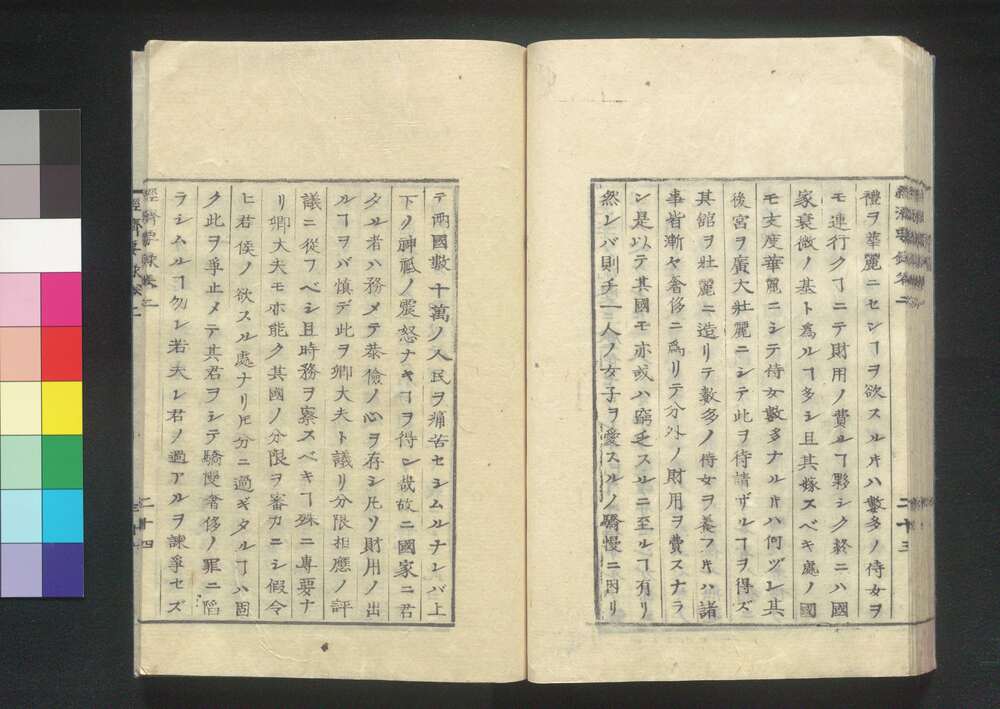 經濟要録卷二
二十三
禮ヲ華麗ニセンヿヲ欲スル𪜈ハ數多ノ侍女ヲ
モ連行クヿニテ財用ノ費ルヿ夥シク終ニハ國
家衰微ノ基ト為ルヿ多シ且其嫁スベキ處ノ國
モ支度華麗ニシテ侍女數多ナル𪜈ハ何ヅレ其
後宮ヲ廣大壯麗ニシテ此ヲ待請ザルヿヲ得ズ
其館ヲ壯麗ニ造リテ數多ノ侍女ヲ養フ𪜈ハ諸
事皆漸ヤ奢侈ニ爲リテ分外ノ財用ヲ費スナラ
ン是以テ其國モ亦或ハ窮乏スルニ至ルヿ有リ
然レバ則チ一人ノ女子ヲ愛スルノ驕慢ニ因リ
テ兩國數十萬ノ人民ヲ痛苦セシムルナレバ上
下ノ神祗ノ震怒ナキヿヲ得ン哉故ニ國家ニ君
タル者ハ務メテ恭儉ノ心ヲ存シ凡ソ財用ノ出
ルヿヲバ慎デ此ヲ卿大夫ト議リ分限相應ノ評
議ニ從フベシ且時務ヲ察スベキヿ殊ニ專要ナ
リ卿大夫モ亦能ク其國ノ分限ヲ審カニシ假令
ヒ君侯ノ欲スル處ナリ𪜈分ニ過ギタルヿハ固
ク此ヲ爭止メテ其君ヲシテ驕慢奢侈ノ罪ニ陷
ラシムルヿ勿レ若夫レ君ノ過アルヲ諫爭セズ
經濟要録卷二
二十四